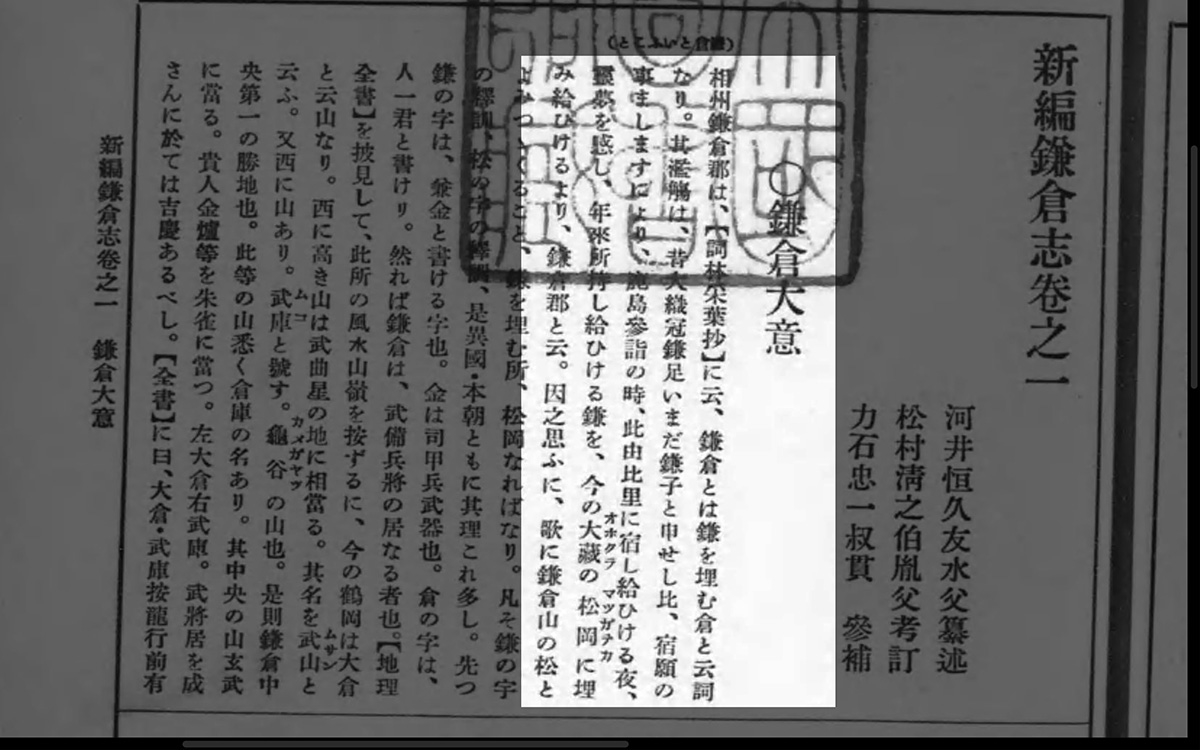 新編鎌倉志卷之一
河井恒久友水父纂述
松村淸之伯胤父考訂
力石忠一叔貫 參補
○鎌倉大意
(鎌倉といふこと)
相州鎌倉郡は、【詞林采葉抄】に云、鎌倉とは鎌を埋む倉と云詞
なり。其濫觴は、昔大織冠鎌足いまだ鎌子と申せし比、宿願の
事ましますにより、鹿島參詣の時、此由比里に宿し給ひける夜、
オホクラ マツガヲカ
靈夢を感し、年來所持し給ひける鎌を、今の大藏の松岡に埋
み給ひけるより、鎌倉郡と云。因之思ふに、歌に鎌倉山の松と
よみつゞくること、鎌を埋む所、松岡なればなり。凡そ鎌の字
の釋訓、松の字の釋訓、是異國・本朝ともに其理これ多し。先つ
鎌の字は、兼金と書ける字也。金は司甲兵武器也。倉の字は、
人一君と書けり。然れば鎌倉は、武備兵將の居なる者也。【地理
全書】を披見して、此所の風水山嶺を按ずるに、今の鶴岡は大倉
ムサン
と云山なり。西に高き山は武曲星の地に相當る。其名を武山と
ムコ カメガヤツ
云ふ。又西に山あり。武庫と號す。龜谷の山也。是則鎌倉中
央第一の勝地也。此等の山悉く倉庫の名あり。其中央の山玄武
に當る。貴人金爐等を朱雀に當つ。左大倉右武庫。武將居を成
さんに於ては吉慶あるべし。【全書】に曰、大倉・武庫按龍行前有
新編鎌倉志卷之一 鎌倉大意